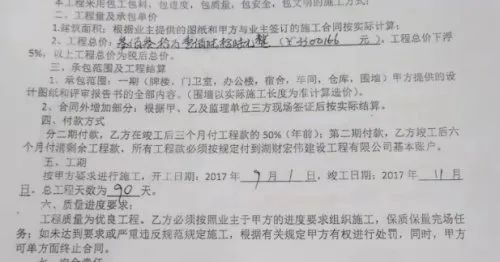 本工程采用包工包料、包进度、包质量、包安全、包文明的施工方式。
二、工程量及承包单价
1.建筑面积：根据业主提供的图纸和甲方与业主签订的施工合同按实际计算；
2、工程总价： 元），工程总价下浮
5%，以上工程总价为税后总价。
三、承包范围及工程结算
1. 承包范围：一期（牌楼、门卫室，办公楼，宿舍，车间，仓库，围墙）甲方提供的设
计图纸和评审报告书的全部内容。（围墙以实际施工长度为准计算造价）。
2、合同外增加部分：根据甲、乙及监理单位三方现场签证后按实际结算。
四、付款方式
分二期付款，乙方在竣工后三个月付工程款的 50%（年前）；第二期付款，乙方竣工后六
个月付清剩余工程款，所有工程款必须按规定付到湖财宏伟建设工程有限公司基本账户。
五、工期
按甲方要求进行施工，开工日期：2017 年 9 月 1 日，竣工日期：2017 年 11 月
日。总工程天数为 90 天。
六、质量进度要求：
工程质量为优良工程。乙方必须按照业主于甲方的进度要求组织施工，保质保量完场任
务；如未达到要求或严重违反规范规定施工，根据有关规定甲方有权进行处罚，同时，甲方
可单方面终止合同。